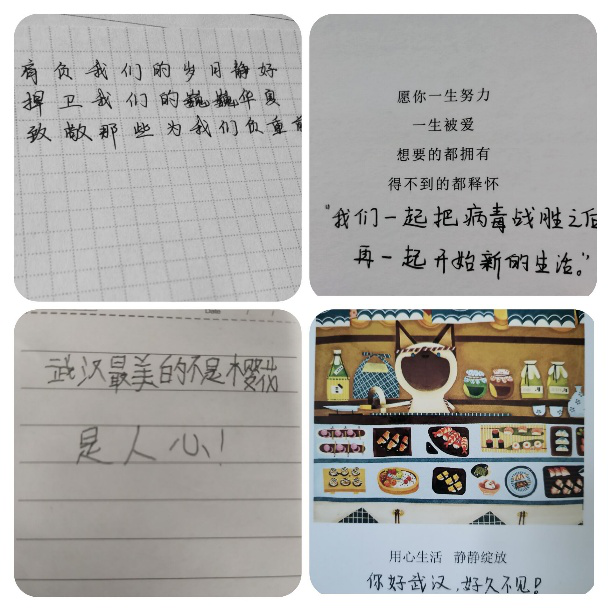 肩负我们的岁月静好
捍卫我们的巍巍华夏
致敬那些为我们负重
愿你一生努力
一生被爱
想要的都拥有
得不到的都释怀
"我们一起把病毒战胜之后
再一起开始新的生活。"
武汉最美的不是樱花
是人心!
用心生活 静静绽放
你好武汉,好久不见!